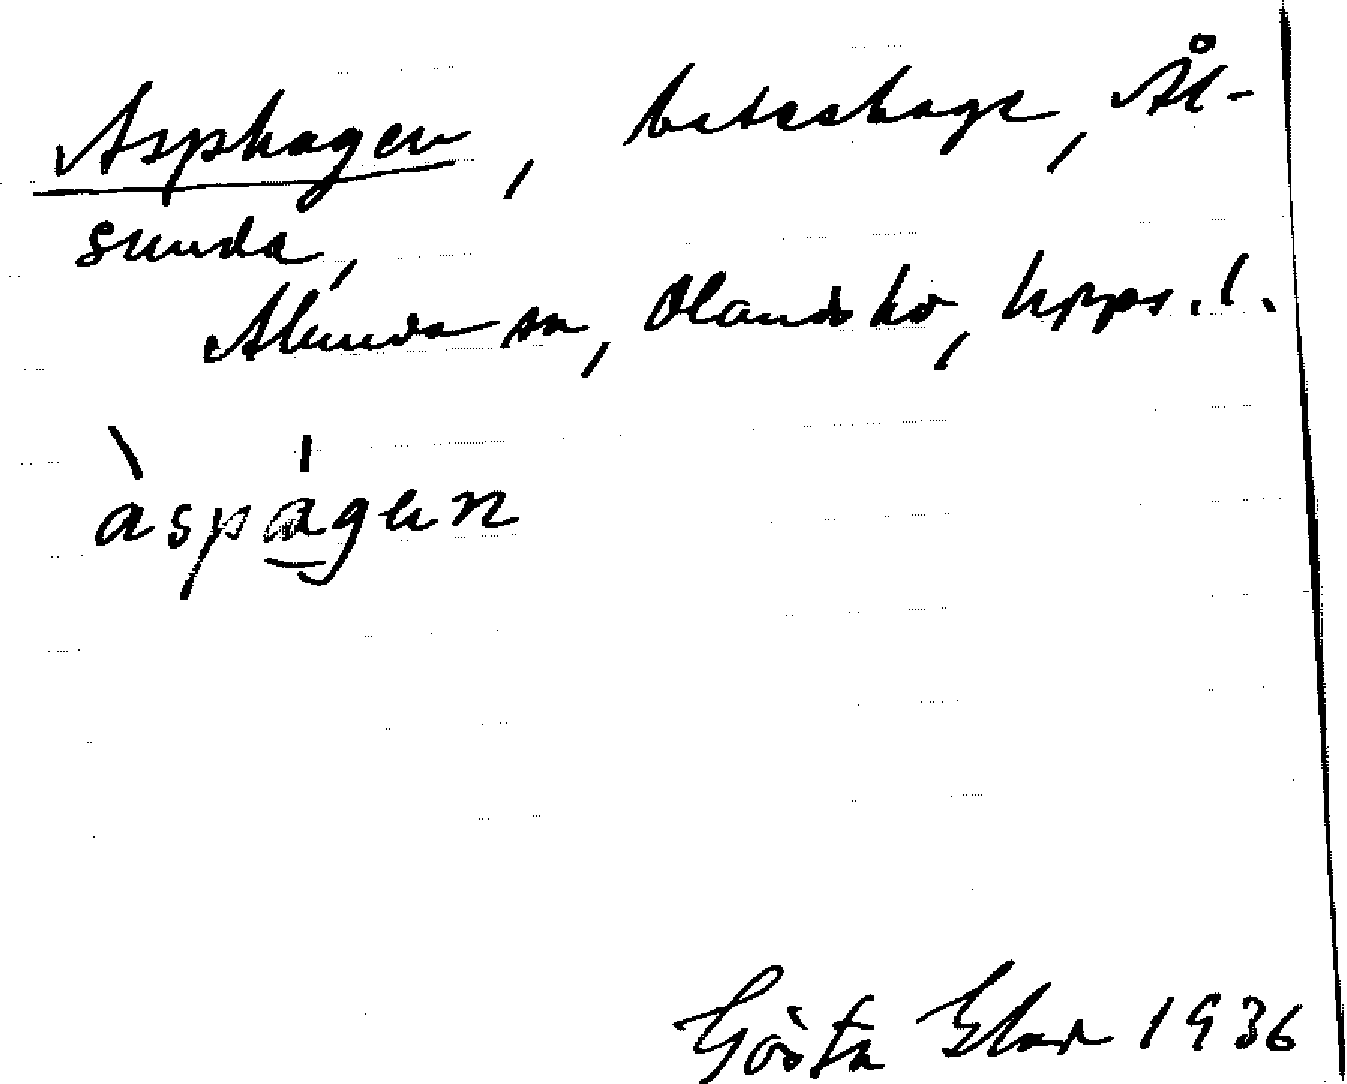 Asphagen, beteshage, Ål-
sunda,
Alunda sn, Olands hd, Upps. l.
àspágen
Gösta Elar 1936